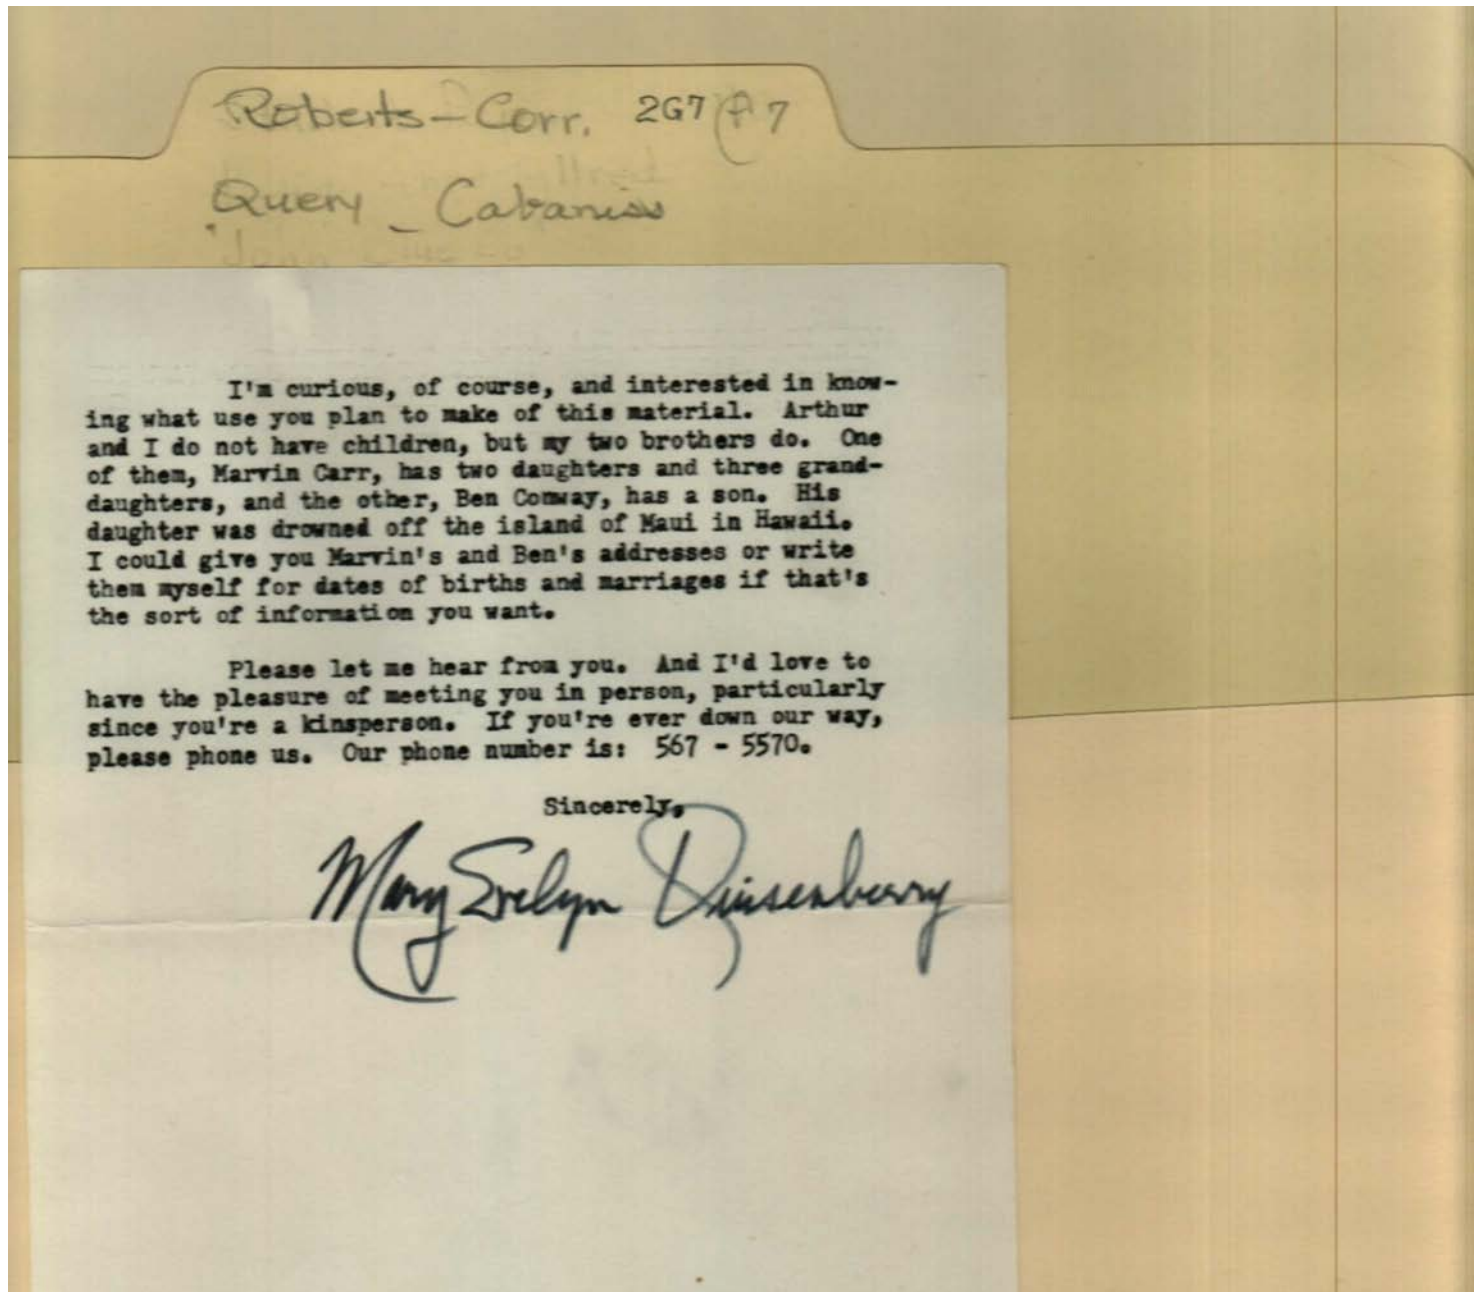 Roberts - Corr. 2G7 f7
Query - Cabaniss
I'm curious, of course, and interested in know-
ing what use you plan to make of this material. Arthur
and I do not have children, but my two brothers do. One
of them, Marvin Carr, has two daughters and three grand-
daughters, and the other, Ben Conway, has a son. His
daughter was drowned off the island of Maui in Hawaii.
I could give you Marvin's and Ben's addresses or write
them myself for dates of births and marriages if that's
the sort of information you want.
Please let me hear from you. And I'd love to
have the pleasure of meeting you in person, particularly
since you're a kinsperson. If you're ever down our way,
please phone us. Our phone number is: 567 - 5570.
Sincerely,
Mary Evelyn Quisenberry